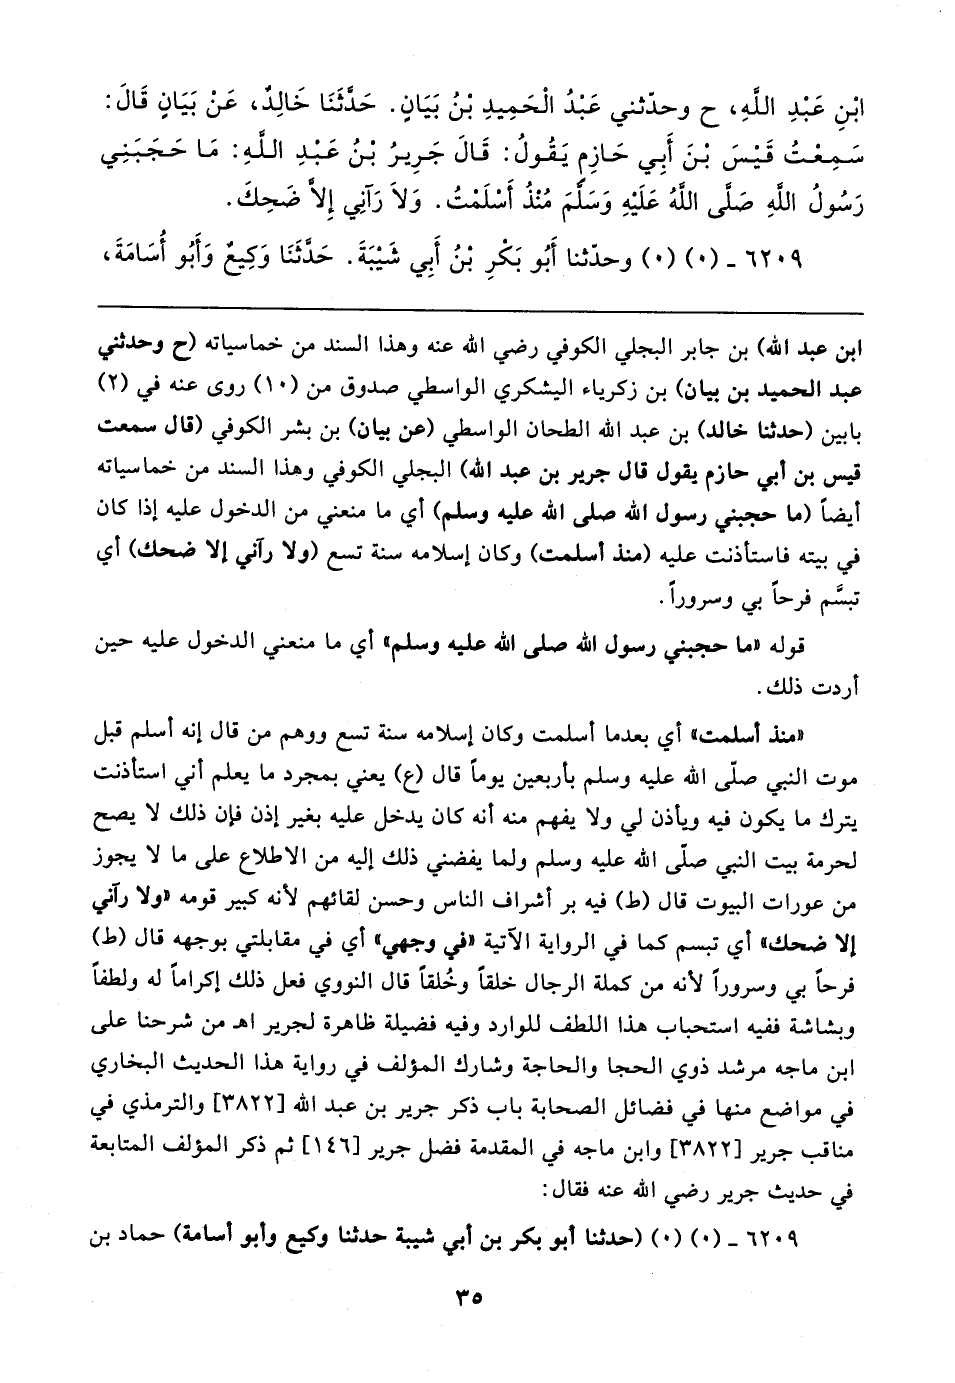 ابْنِ عَبْدِ اللَّهِ، ح وحدّثني عَبْدُ الْحَمِيدِ بْنُ بَيَانٍ. حَدَّثَنَا خَالِدٌ، عَنْ بَيَانٍ قَالَ:
سَمِعْتُ قَيْسَ بْنَ أَبِي حَازِمٍ يَقُولُ: قَالَ جَرِيرُ بْنُ عَبْدِ اللَّهِ: مَا حَجَبَنِي
رَسُولُ اللَّهِ صَلَّى اللَّهُ عَلَيْهِ وَسَلَّمَ مُنْذُ أَسْلَمْتُ. وَلاَ رَآنِي إِلاَّ ضَحِكَ.
٦٢٠٩ ـ (٠) (٠) وحدّثنا أَبُو بَكْرِ بْنُ أَبِي شَيْبَةَ. حَدَّثَنَا وَكِيعٌ وَأَبُو أُسَامَةَ،
ابن عبد الله) بن جابر البجلي الكوفي رضي الله عنه وهذا السند من خماسياته (ح وحدثني
عبد الحميد بن بيان) بن زكرياء اليشكري الواسطي صدوق من (١٠) روى عنه في (٢)
بابين (حدثنا خالد) بن عبد الله الطحان الواسطي (عن بيان) بن بشر الكوفي (قال سمعت
قيس بن أبي حازم يقول قال جرير بن عبد الله) البجلي الكوفي وهذا السند من خماسياته
أيضاً (ما حجبني رسول الله صلى الله عليه وسلم) أي ما منعني من الدخول عليه إذا كان
في بيته فاستأذنت عليه (منذ أسلمت) وكان إسلامه سنة تسع (ولا رآني إلا ضحك) أي
تبسَّم فرحاً بي وسروراً.
قوله «ما حجبني رسول الله صلى الله عليه وسلم» أي ما منعني الدخول عليه حين
أردت ذلك.
«منذ أسلمت» أي بعدما أسلمت وكان إسلامه سنة تسع ووهم من قال إنه أسلم قبل
موت النبي صلّى الله عليه وسلم بأربعين يوماً قال (ع) يعني بمجرد ما يعلم أني استأذنت
يترك ما يكون فيه ويأذن لي ولا يفهم منه أنه كان يدخل عليه بغير إذن فإن ذلك لا يصح
لحرمة بيت النبي صلّى الله عليه وسلم ولما يفضني ذلك إليه من الاطلاع على ما لا يجوز
من عورات البيوت قال (ط) فيه بر أشراف الناس وحسن لقائهم لأنه كبير قومه «ولا رآني
إلا ضحك» أي تبسم كما في الرواية الآتية «في وجهي» أي في مقابلتي بوجهه قال (ط)
فرحاً بي وسروراً لأنه من كملة الرجال خلقاً وخُلقاً قال النووي فعل ذلك إكراماً له ولطفاً
وبشاشة ففيه استحباب هذا اللطف للوارد وفيه فضيلة ظاهرة لجرير اهـ من شرحنا على
ابن ماجه مرشد ذوي الحجا والحاجة وشارك المؤلف في رواية هذا الحديث البخاري
في مواضع منها في فضائل الصحابة باب ذكر جرير بن عبد الله [٣٨٢٢] والترمذي في
مناقب جرير [٣٨٢٢] وابن ماجه في المقدمة فضل جرير [١٤٦] ثم ذكر المؤلف المتابعة
في حديث جرير رضي الله عنه فقال:
٦٢٠٩ ـ (٠) (٠) (حدثنا أبو بكر بن أبي شيبة حدثنا وكيع وأبو أسامة) حماد بن
٣٥